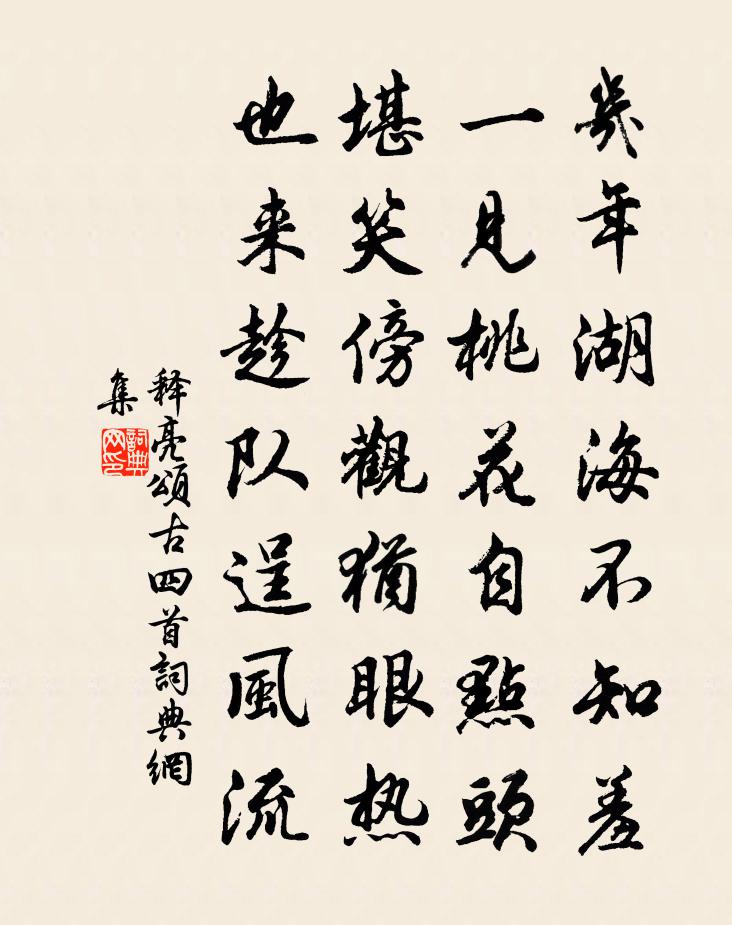 幾年湖海不知羞
一見桃花自點頭
堪笑傍觀猶眼热
也来趁队逞風流
释亮頌古四首詞典網
集
詞典網印